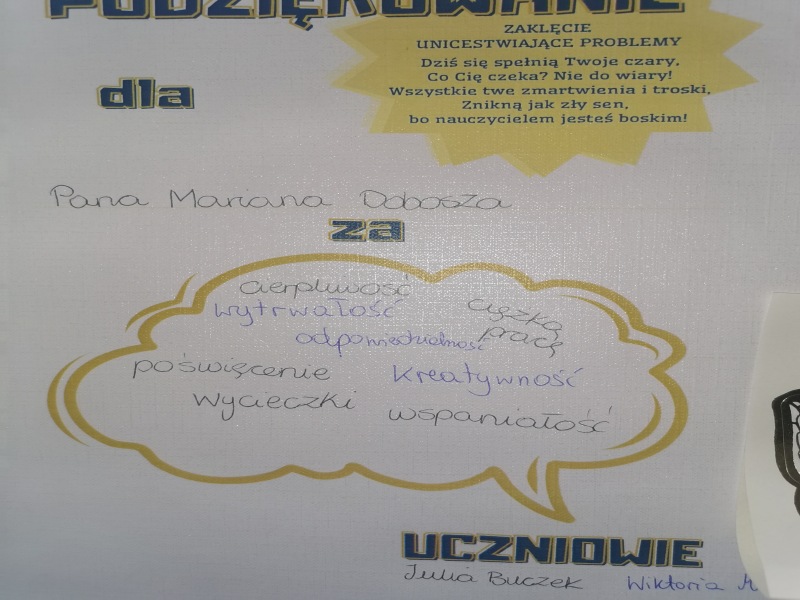 PODZIĘKOWANIE
ZAKLĘCIE
UNICESTWIAJĄCE PROBLEMY
Dziś się spełnią Twoje czary,
Co Cię czeka? Nie do wiary!
Wszystkie twe zmartwienia i troski,
Znikną jak zły sen,
bo nauczycielem jesteś boskim!
dla
Pana Mariana Dobosza
za
cierpliwość
wytrwałość
ciężką
pracę
odpowiedzialność
poświęcenie
kreatywność
wycieczki
wspaniałość
UCZNIOWIE
Julia Buczek Wiktoria M